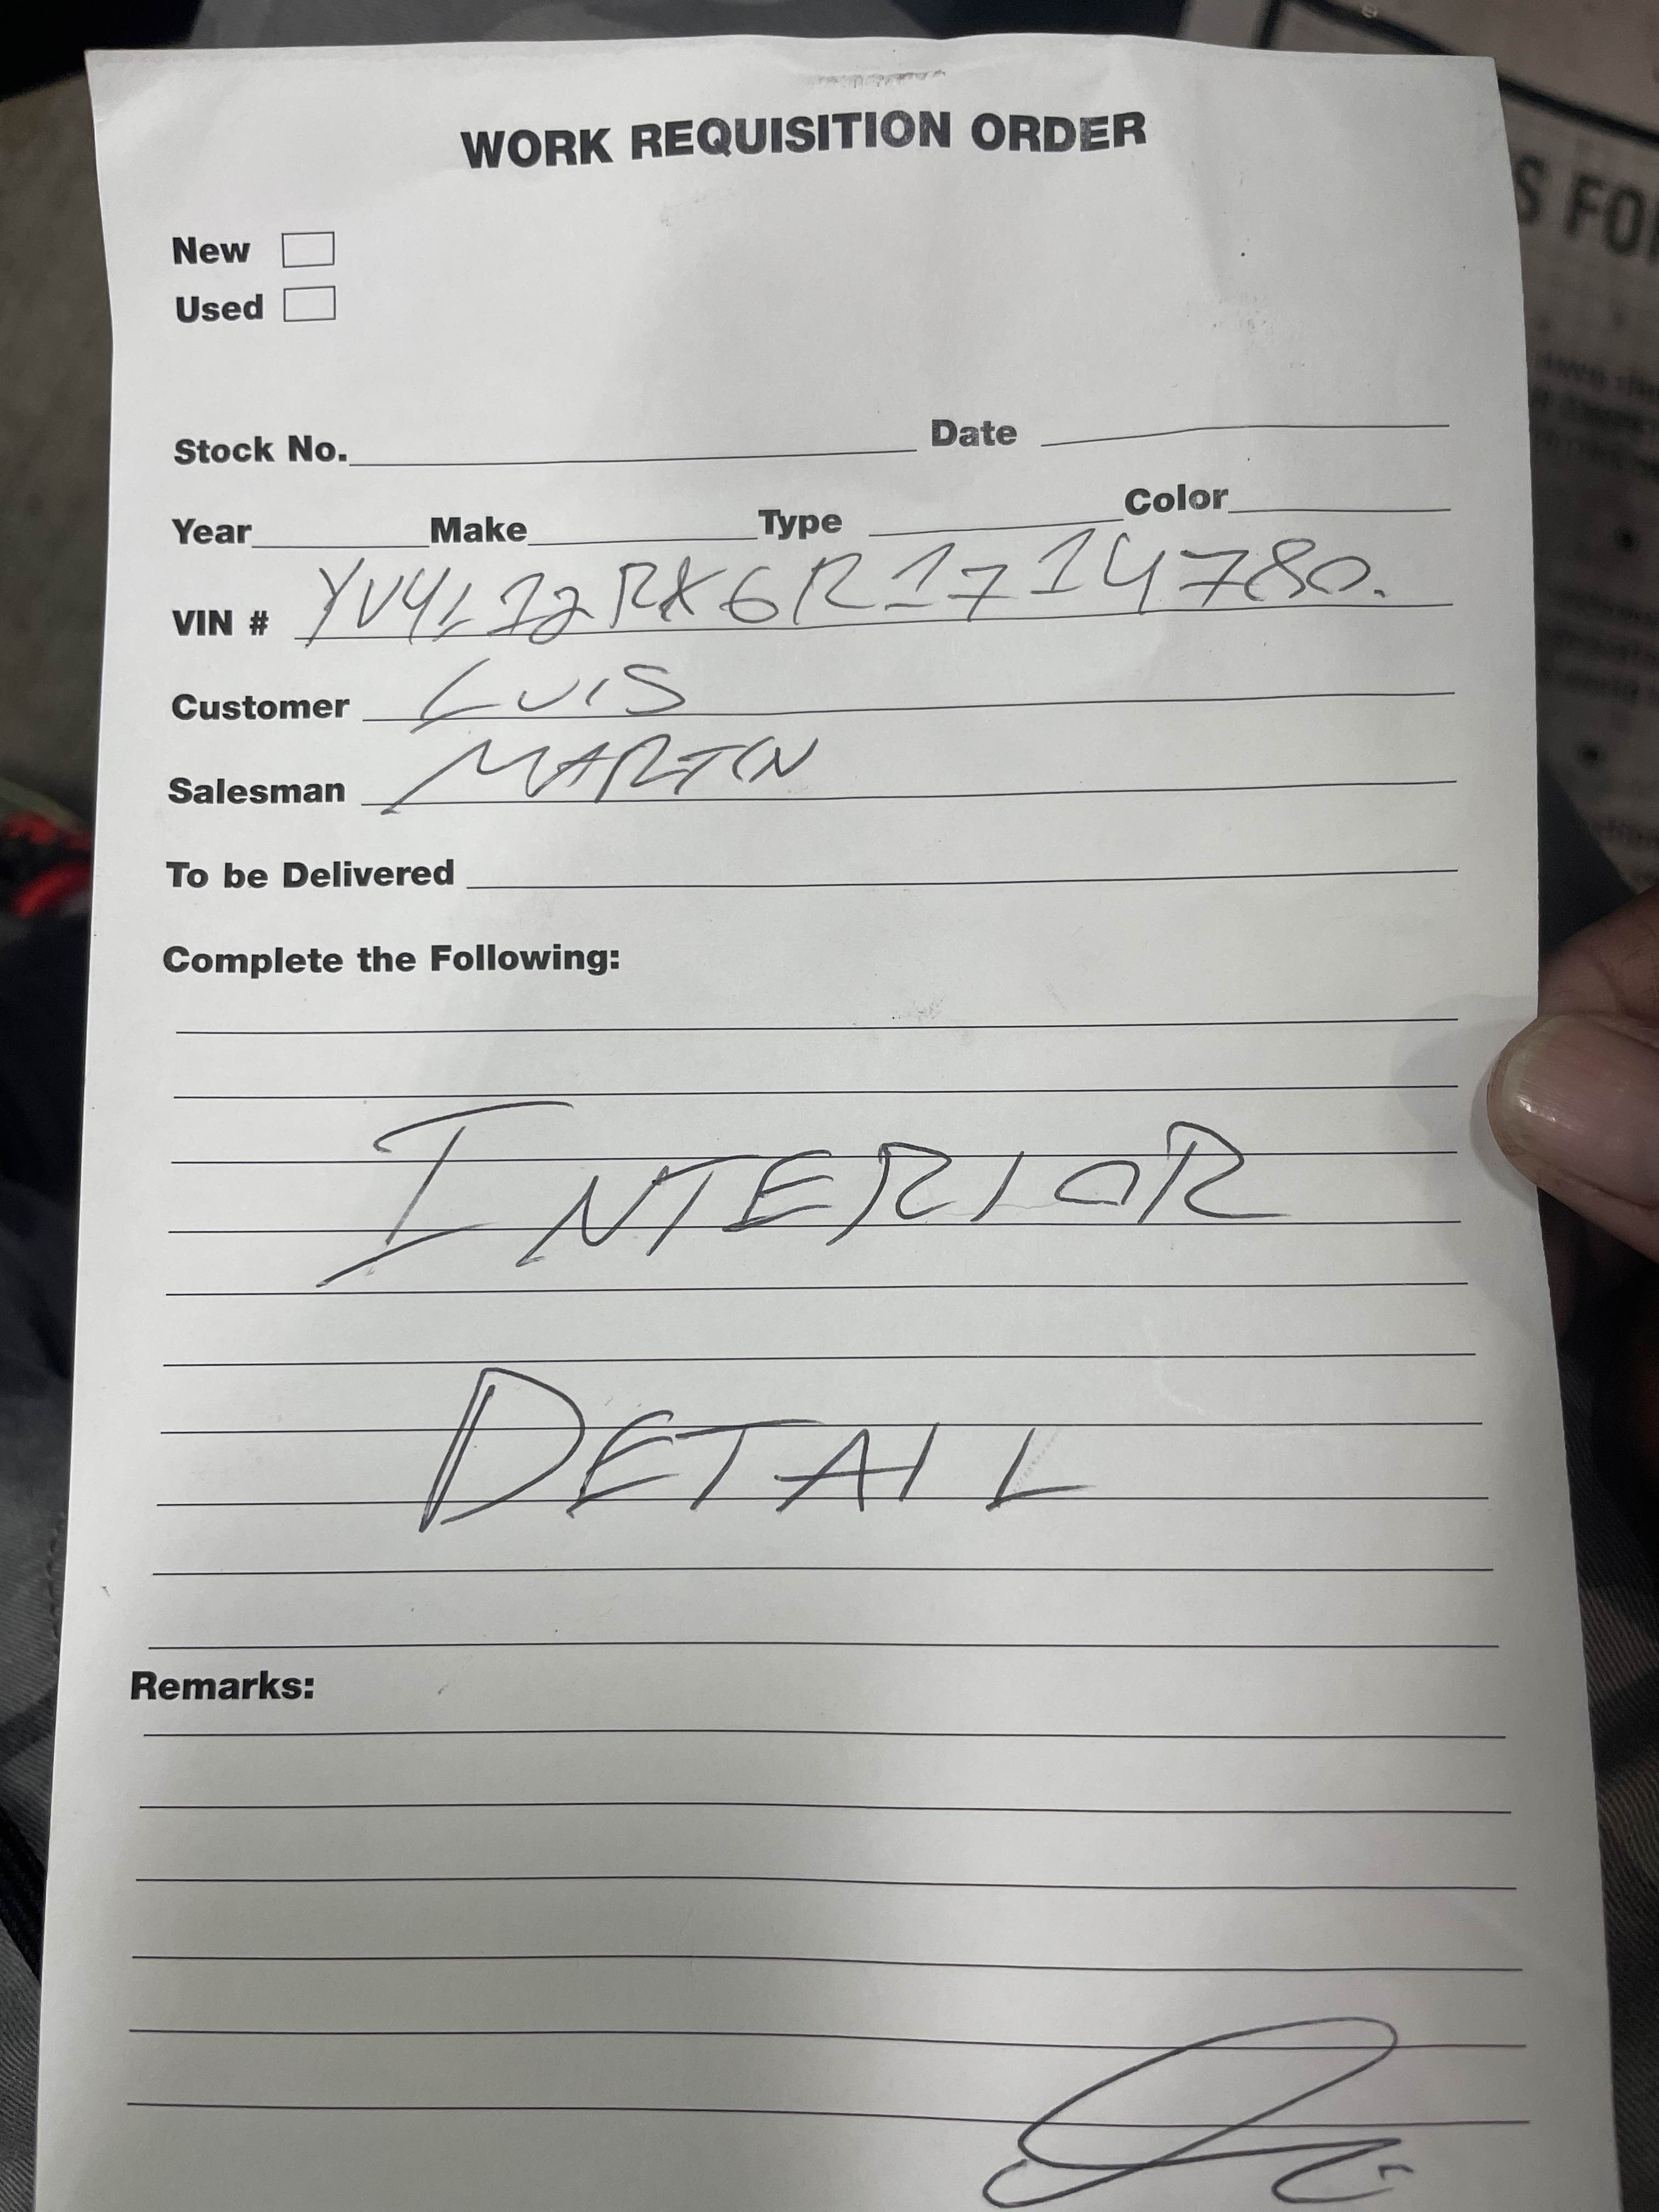 WORK REQUISITION ORDER
New
Used
Stock No. Date
Year Make Type Color
VIN # YV4L12RX6R1714780.
Customer LUIS
Salesman MARTIN
To be Delivered
Complete the Following:
INTERIOR
DETAIL
Remarks:
S FO